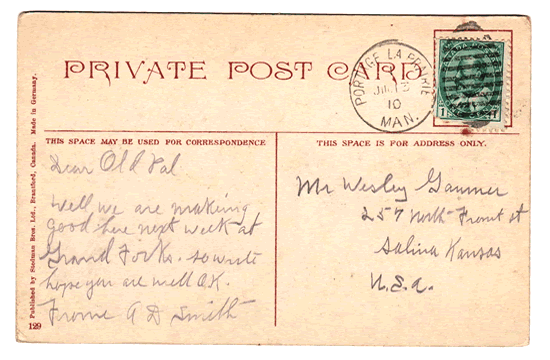 PRIVATE POST CARD
PORTAGE LA PRAIRIE
JUL 13
10
MAN.
THIS SPACE MAY BE USED FOR CORRESPONDENCE
THIS SPACE IS FOR ADDRESS ONLY.
Dear Old Pal
Well we are making
good here next week at
Grand Forks. so write
hope you are well O.K.
Frome A D Smith
Mr Wesley
257 North Front st
Salina Kansas
U.S.A.
Published by Stedman Bros. Ltd., Brantford, Canada. Made in Germany.
129